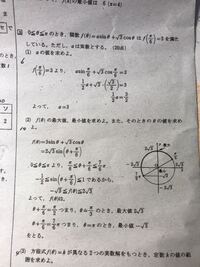 f(x)の最小値は 6 (x=4)
0≦θ≦πのとき, 関数 f(θ)=asinθ+√3cosθ は f(π/6)=3を満た
している。ただし, aは実数とする。(20点)
(1) aの値を求めよ。
f(π/6)=3より, asinπ/6+√3cosπ/6=3
1/2a+√3・(√3/2)=3
1/2a=3/2
よって, a=3
(2) f(θ)の最大値, 最小値を求めよ。また, そのときのθの値を求め
よ。
f(θ)=3sinθ+√3cosθ
=2√3sin(θ+π/6)
0≦θ≦πより, π/6≦θ+π/6≦7/6π
-1/2≦sin(θ+π/6)≦1であるから,
-√3≦f(θ)≦2√3
よって, f(θ)は,
θ+π/6=π/2 つまり, θ=π/3のとき, 最大値 2√3
θ+π/6=7/6π つまり, θ=πのとき, 最小値 -√3
をとる。
(3) 方程式f(θ)=kが異なる2つの実数解をもつとき, 定数kの値の範
囲を求めよ。